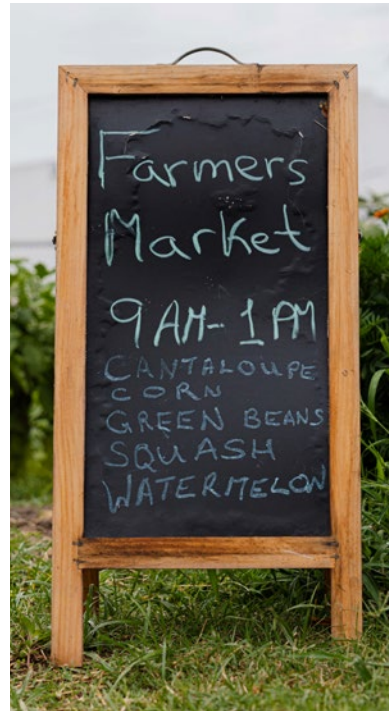 Farmers
Market
9 AM - 1 PM
CANTALOUPE
CORN
GREEN BEANS
SQUASH
WATERMELON